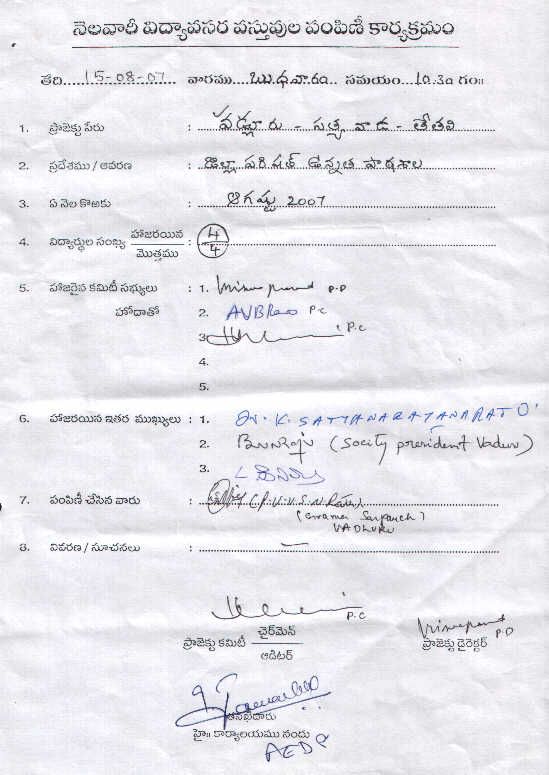 నెలవారీ విద్యావసర వస్తువుల పంపిణీ కార్యక్రమం
తేది....15-08-07.... వారము...బుధవారం... సమయం...10.30 గం॥
1. ప్రాజెక్టు పేరు : వడ్లూరు - సత్యవాడ - తేతలి
2. ప్రదేశము / ఆవరణ : జిల్లా పరిషత్ ఉన్నత పాఠశాల
3. ఏ నెల కొఱకు : ఆగష్టు 2007
4. విద్యార్థుల సంఖ్య హాజరయిన / మొత్తము : 4/4
5. హాజరైన కమిటీ సభ్యులు : 1. P.D
హోదాతో 2. AVBRao P.C
3. P.C
4.
5.
6. హాజరయిన ఇతర ముఖ్యులు : 1. Dr. K. SATYANARAYANARAJU
2. BNNRaju (Socity president Vadluru)
3.
7. పంపిణీ చేసిన వారు : (C.P.V.V.S.N.Raju)
(Grama Sarpanch)
VADLURU
8. వివరణ / సూచనలు : —
P.C
చైర్‌మెన్
ప్రాజెక్టు కమిటీ
ఆడిటర్
P.D
ప్రాజెక్టు డైరెక్టర్
తనిఖీదారు
హై॥ కార్యాలయము నందు